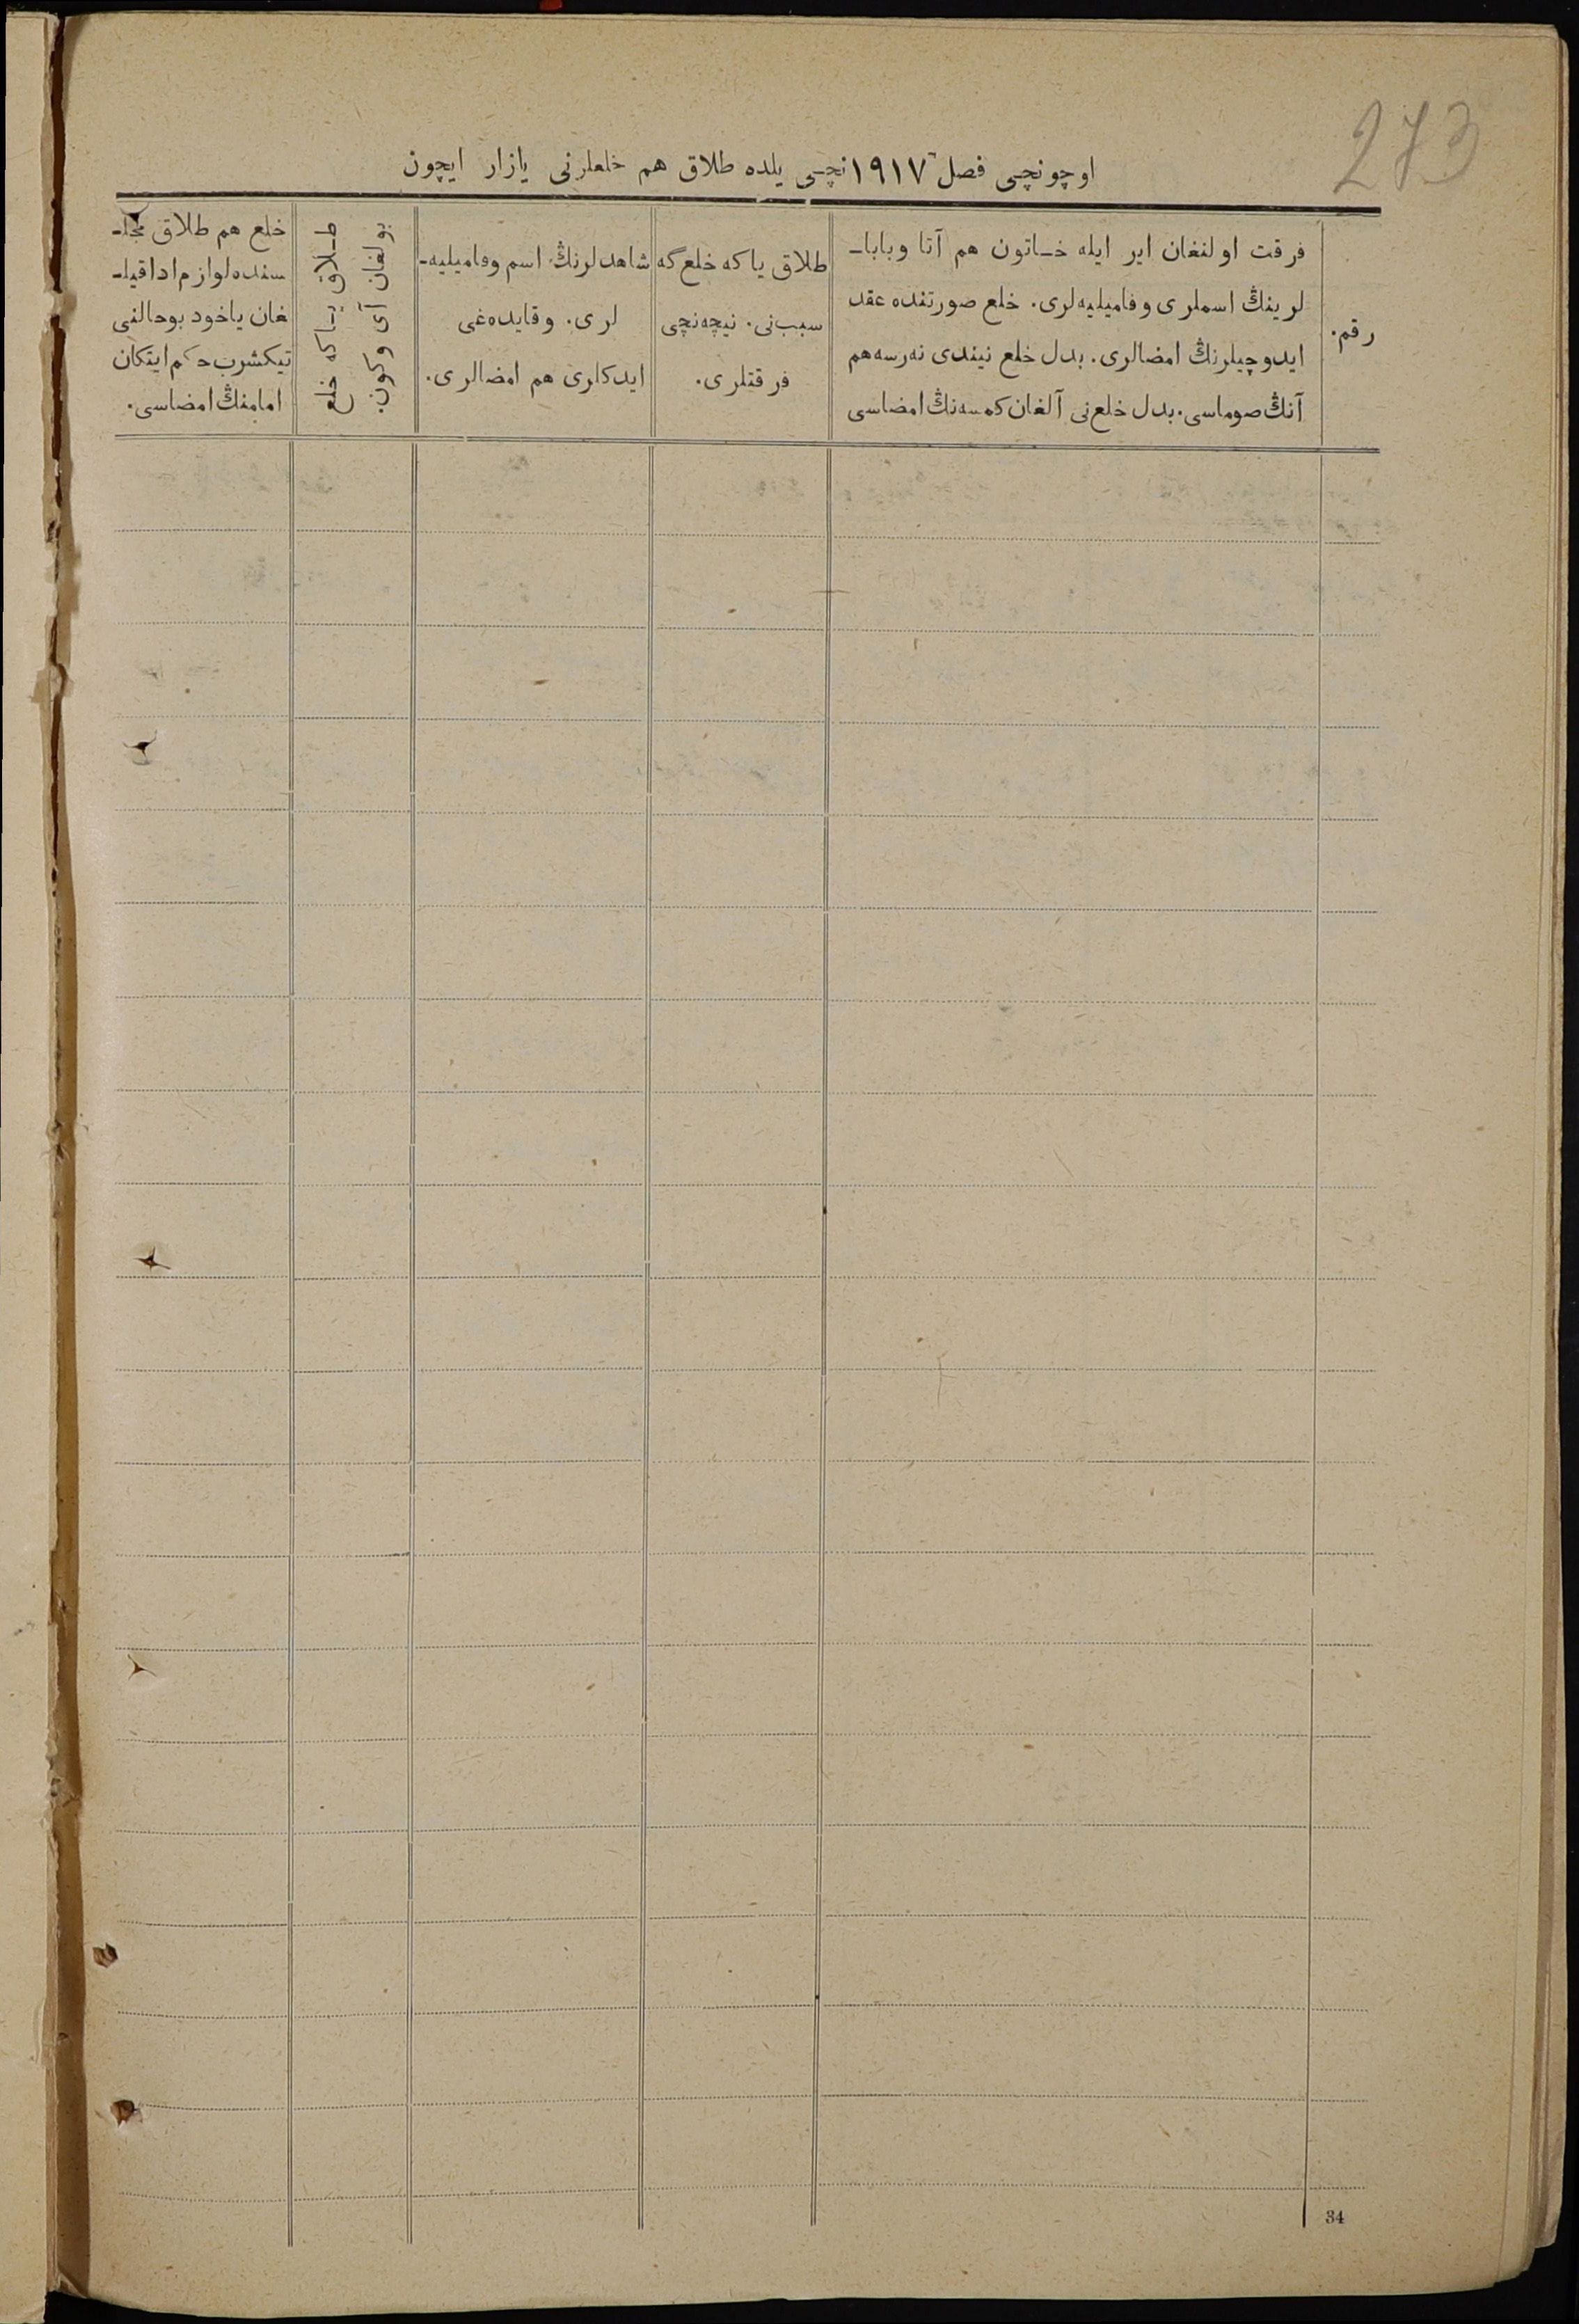 273
اوچونچی فصل ١٩١٧نچی یلده طلاق هم خلعلرنی یازار ایچون
رقم.
فرقت اولنغان ایر ایله خاتون هم آتا وبابا-
لرینڭ اسملری وفامیلیه‌لری. خلع صورتنده عقد
ایدوچیلرنڭ امضالری. بدل خلع نیندی نه‌رسه‌هم
آنڭ صوماسی. بدل خلع‌نی آلغان کمسه‌نڭ امضاسی
طلاق یاکه خلع‌گه
سبب‌نی. نیچه‌نچی
فرقتلری.
شاهدلرنڭ اسم وفامیلیه-
لری. وقایده‌غی
ایدکلری هم امضالری.
طلاق یاکه خلع
بولغان آی وکون.
خلع هم طلاق مجل-
سنده‌لوازم اداقیل-
غان یاخود بوحالنی
تیکشرب حکم ایتکان
امامنڭ امضاسی.
34